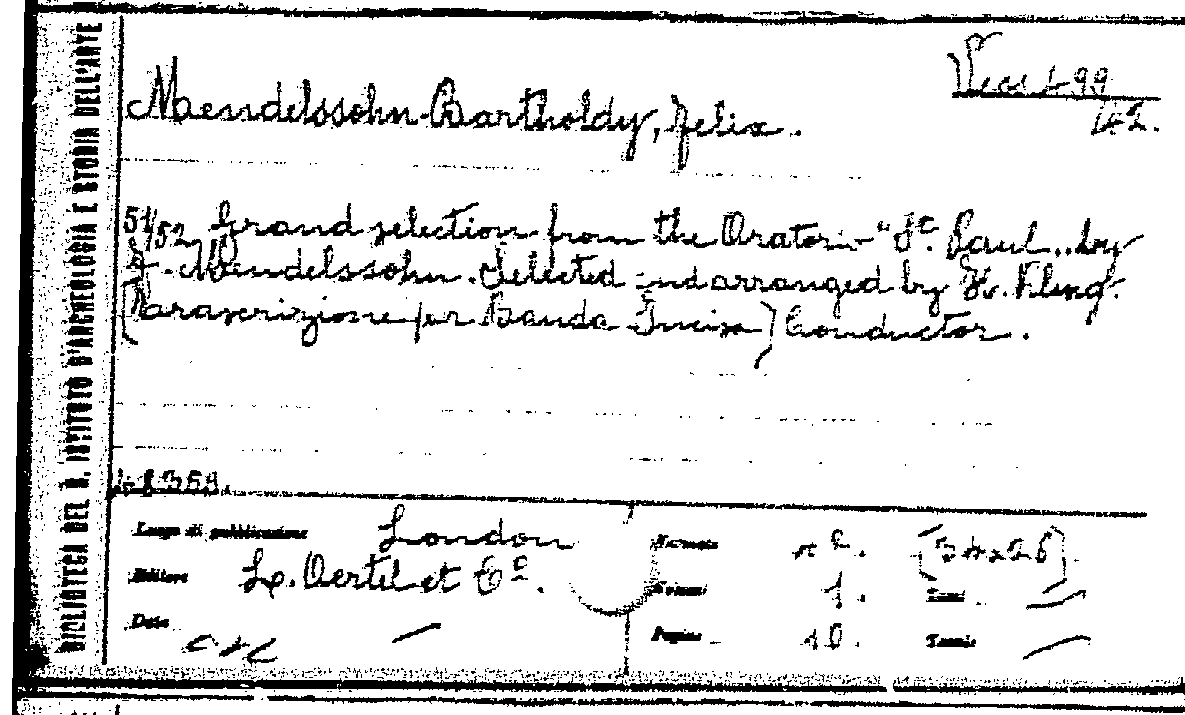 BIBLIOTECA DEL R. ISTITUTO D'ARCHEOLOGIA E STORIA DELL'ARTE
Vess 499
142.
Mendelssohn-Bartholdy, Felix.
51/52 Grand selection from the Oratorio "St. Paul" by
F. Mendelssohn. Selected and arranged by H. Kling.
[Trascrizione per Banda Incisa] Conductor.
Luogo di pubblicazione London
Formato n 8. (34x26)
Editore Le. Oertel et Cº.
Volumi 1. Tomi —
Data —
Pagine 10. Tavole —